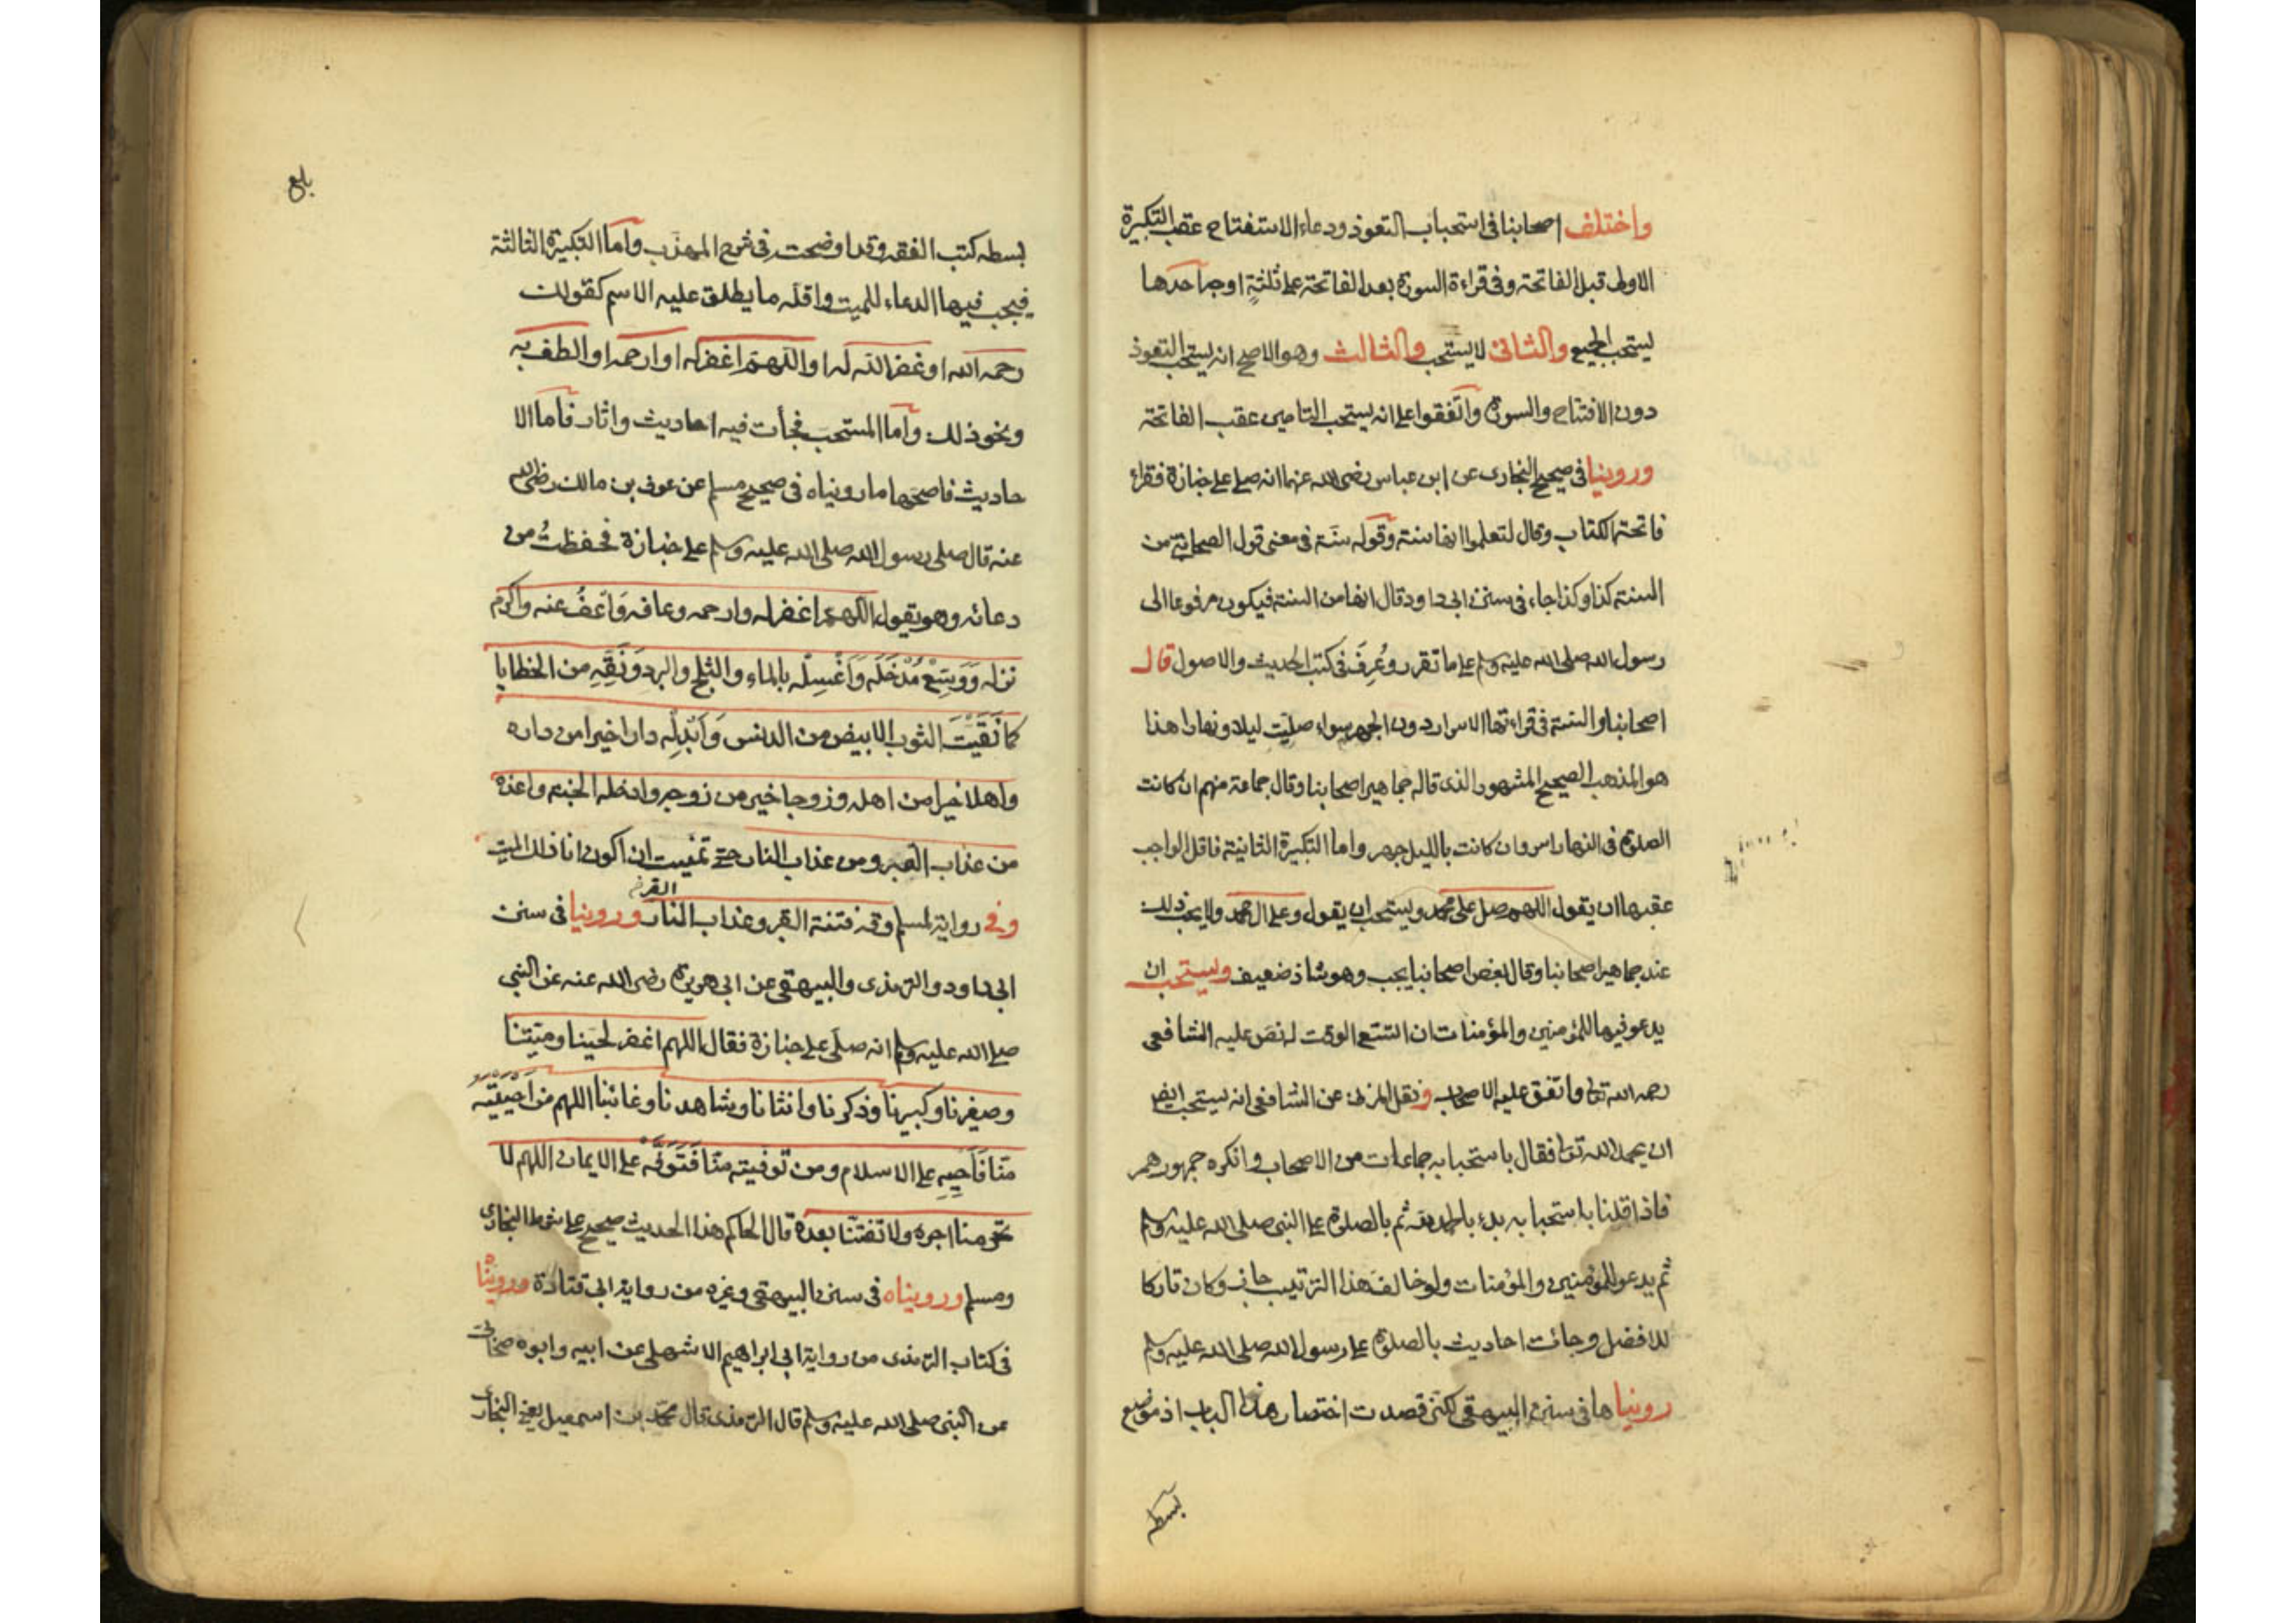 واختلف اصحابنا فى استحباب التعوذ ودعاء الاستفتاح عقب التكبيرة
الاولى قبل الفاتحة وفى قراءة السورة بعد الفاتحة على ثلثة اوجه احدها
يستحب الجميع والثانى لا يستحب والثالث وهو الاصح انه يستحب التعوذ
دون الافتتاح والسورة واتفقوا على انه يستحب التامين عقب الفاتحة
وروينا فى صحيح البخارى عن ابن عباس رضى الله عنهما انه صلى على جنازة فقراء
فاتحة الكتاب وقال لتعلموا انها سنة وقوله سنة فى معنى قول الصحابى من
السنة كذا وكذا جاء فى سنن ابى داود قال انها من السنة فيكون مرفوعا الى
رسول الله صلى الله عليه وسلم على ما تقرر وعُرِفَ فى كتب الحديث والاصول قال
اصحابنا والسنة فى قراءتها الاسرار دون الجهر سواء صليت ليلا ونهارا هذا
هو المذهب الصحيح المشهور الذى قاله جماهير اصحابنا وقال جماعة منهم ان كانت
الصلوة فى النهار اسر وان كانت بالليل جهر واما التكبيرة الثانية فاقل الواجب
عقبها ان يقول اللهم صل على محمد ويستحب ان يقول وعلى ال محمد ولا يجب ذلك
عند جماهير اصحابنا وقال بعض اصحابنا يجب وهو شاذ ضعيف ويستحب ان
يدعو فيها للمؤمنين والمؤمنات ان اتسع الوقت له نص عليه الشافعى
رحمه الله تعا واتفق عليه الاصحاب ونقل المزنى عن الشافعى انه يستحب ايضا
ان يحمد الله تعا فقال باستحبابه جماعات من الاصحاب وانكره جمهورهم
فاذا قلنا باستحبابه بدء بالحمد لله ثم بالصلوة على النبى صلى الله عليه وسلم
ثم يدعو للمؤمنين والمؤمنات ولو خالف هذا الترتيب جاز وكان تاركا
للافضل وجائت احاديث بالصلوة على رسول الله صلى الله عليه وسلم
رويناها فى سنن البيهقى لكنى قصدت اختصار هذا الباب اذ موضع
بسطه
بلغ
بسطه كتب الفقه وقد اوضحته فى شرح المهذب واما التكبيرة الثالثة
فيجب فيها الدعاء للميت واقله ما يطلق عليه الاسم كقولك
رحمه الله او غفر الله له او اللهم اغفر له او ارحمه او الطف به
ونحو ذلك واما المستحب فجأت فيه احاديث واثار فاما الا
حاديث فاصحها ما رويناه فى صحيح مسلم عن عوف بن مالك رضى الله
عنه قال صلى رسول الله صلى الله عليه وسلم على جنازة فحفظتُ من
دعائه وهو يقول اللهم اغفر له وارحمه وعافه وَاعفُ عنه واكرم
نزله وَوَسِّعْ مُدْخَلَه وَاغْسِلْه بالماء والثلج والبرد وَنَقِّهِ من الخطايا
كما نَقَّيْتَ الثوب الابيض من الدنس وَاَبْدِلْه دارا خيرا من داره
واهلا خيرا من اهله وزوجا خير من زوجه وادخله الجنة واعذه
من عذاب القبر ومن عذاب النار حتى تمنيت ان اكون انا ذلك الميت
وفى رواية لمسلم وقه فتنة القبر وعذاب النار وروينا فى سنن
ابى داود والترمذى والبيهقى عن ابى هريرة رضى الله عنه عن النبى
صلى الله عليه وسلم انه صلى على جنازة فقال اللهم اغفر لحينا وميتنا
وصغيرنا وكبيرنا وذكرنا وانثانا وشاهدنا وغائبنا اللهم من احييته
منا فَاَحْيِهِ على الاسلام ومن توفيته منا فَتَوَفَّه على الايمان اللهم لا
تحرمنا اجره ولا تفتنا بعده قال الحاكم هذا الحديث صحيح على شرط البخارى
ومسلم ورويناه فى سنن البيهقى وغيره من رواية ابى قتادة وروينا
فى كتاب الترمذى من رواية ابى ابراهيم الاشهلى عن ابيه وابوه صحابى
عن النبى صلى الله عليه وسلم قال الترمذى قال محمد بن اسمعيل يعنى البخارى